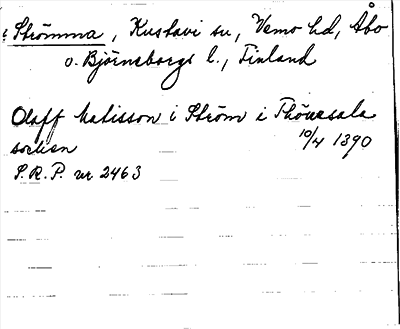 Strömma, Kustavi sn, Vemo hd, Åbo
o. Björneborgs l., Finland
Olaff Matisson i Ström i Thöuesala
socken 10/4 1390
S.R.P. nr 2463